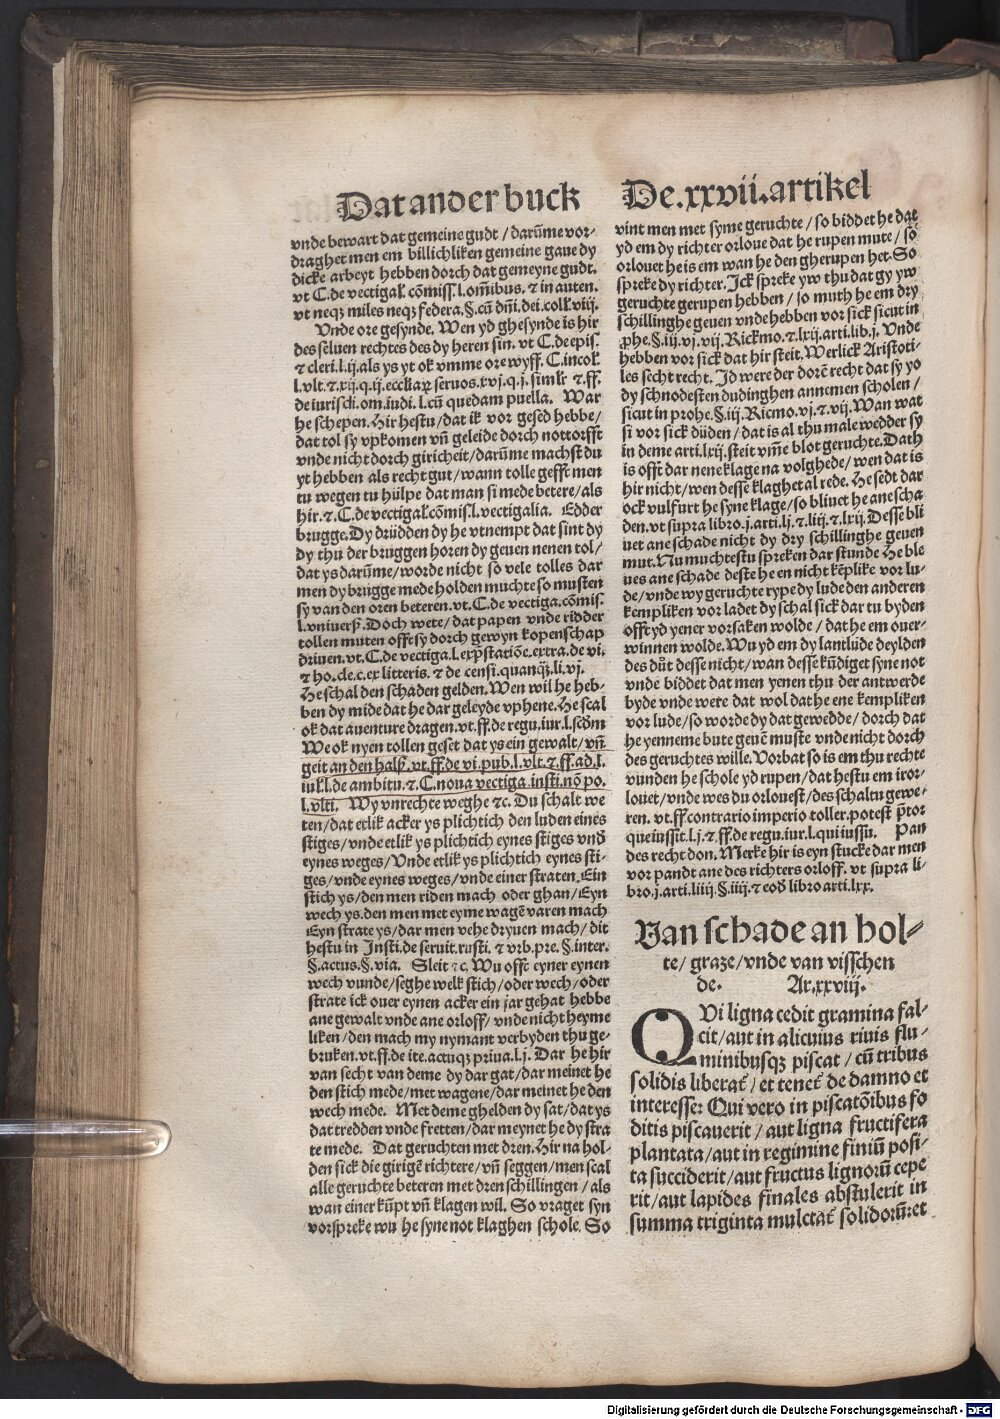 Dat ander buck
vnde bewart dat gemeine gudt / darūme vor-
draghet men em billichliken gemeine gaue dy
dicke arbeyt hebben dorch dat gemeyne gudt.
vt C. de vectigal. cōmiss. l. omībus. ⁊ in auten.
vt neqꝫ miles neqꝫ federa. §. cū dn̄i. dei. coll. viij.
Vnde ore gesynde. Wen yd ghesynde is hir
des seluen rechtes des dy heren sin. vt C. de epis.
⁊ cleri. l. ij. als ys yt ok vmme ore wyff. C. incol.
l. vlt. ⁊ xij. q. ij. eccliaꝝ seruos. xvj. q. j. simlr ⁊. ff.
de iurisdi. om. iudi. l. cū quedam puella. War
he schepen. Hir hestu / dat ik vor gesed hebbe /
dat tol sy vpkomen vn̄ geleide dorch nottorfft
vnde nicht dorch giricheit / darūme machst du
yt hebben als recht gut / wann tolle gefft men
tu wegen tu hülpe dat man si mede betere / als
hir. ⁊. C. de vectigal. cōmis. l. vectigalia. Edder
brugge. Dy drüdden dy he vtnempt dat sint dy
dy thu der bruggen horen dy geuen nenen tol /
dat ys darūme / worde nicht so vele tolles dar
men dy brügge mede holden muchte so musten
sy van den oren beteren. vt. C. de vectiga. cōmis.
l. vniuers. Doch wete / dat papen vnde ridder
tollen muten offt sy dorch gewyn kopenschap
driuen. vt. C. de vectiga. l. exp̄statiōe. extra. de vi.
⁊ ho. cle. c. ex litteris. ⁊ de censi. quanqꝫ. li. vj.
He schal den schaden gelden. Wen wil he heb-
ben dy mide dat he dar geleyde vphene. He scal
ok dat auenture dragen. vt. ff. de regu. iur. l. scd̄m
We ok nyen tollen geset dat ys ein gewalt / vn̄
geit an den hals. vt. ff. de vi. pub. l. vlt. ⁊. ff. ad. l.
iul. l. de ambitu. ⁊. C. noua vectiga. insti. nō po.
l. vlti. Wy vnrechte weghe ⁊c. Du schalt we
ten / dat etlik acker ys plichtich den luden eines
stiges / vnde etlik ys plichtich eynes stiges vnd
eynes weges / Vnde etlik ys plichtich eynes sti-
ges / vnde eynes weges / vnde einer straten. Ein
stich ys / den men riden mach oder ghan / Eyn
wech ys. den men met eyme wagē varen mach
Eyn strate ys / dar men vehe dryuen mach / dit
hestu in Insti. de seruit. rusti. ⁊ vrb. pre. §. inter.
§. actus. §. via. Sleit ⁊c. Wu offt eyner eynen
wech vunde / seghe welk stich / oder wech / oder
strate ick ouer eynen acker ein jar gehat hebbe
ane gewalt vnde ane orloff / vnde nicht heyme
liken / den mach my nymant verbyden thu ge-
bruken. vt. ff. de ite. actuqꝫ priua. l. j. Dar he hir
van secht van deme dy dar gat / dar meinet he
den stich mede / met wagene / dar meinet he den
wech mede. Met deme ghelden dy sat / dat ys
dat tredden vnde fretten / dar meynet he dy stra
te mede. Dat geruchten met dren. Hir na hol-
den sick die girigē richtere / vn̄ seggen / men scal
alle geruchte beteren met dren schillingen / als
wan einer kūpt vn̄ klagen wil. So vraget syn
vorspreke wu he syne not klaghen schole. So
De. xxvii. artikel
vint men met syme geruchte / so biddet he dat
yd em dy richter orloue dat he rupen mute / so
orlouet he is em wan he den gherupen het. So
spreke dy richter. Ick spreke yw thu dat gy yw
geruchte gerupen hebben / so muth he em dry
schillinghe geuen vnde hebben vor sick sicut in
ꝓhe. §. iij. vj. vij. Rickmo. ⁊. lxij. arti. lib. j. Vnde
hebben vor sick dat hir steit. Werlick Aristoti-
les secht recht. Id were der dorē recht dat sy yo
dy schnodesten dudinghen annemen scholen /
sicut in prohe. §. iij. Ricmo. vj. ⁊. vij. Wan wat
si vor sick düden / dat is al thu male wedder sy
in deme arti. lxij. steit vm̄e blot geruchte. Dath
is offt dar nene klage na volghede / wen dat is
hir nicht / wen desse klaghet al rede. He sedt dar
ock vulfurt he syne klage / so bliuet he ane scha
den. vt supra libro. j. arti. lj. ⁊ liij. ⁊ lxij. Desse bli
uet ane schade nicht dy dry schillinghe geuen
mut. Nu muchtestu spreken dar stunde He ble
ues ane schade deste he en nicht kēplike vor lu-
de / vnde wy geruchte rype dy lude den anderen
kempliken vor ladet dy schal sick dar tu byden
offt yd yener vorsaken wolde / dat he em ouer-
winnen wolde. Wu yd em dy lantlüde deylden
des düt desse nicht / wan desse kūdiget syne not
vnde biddet dat men yenen thu der antwerde
byde vnde were dat wol dat he ene kempliken
vor lude / so worde dy dat gewedde / dorch dat
he yenneme bute geuē muste vnde nicht dorch
des geruchtes wille. Vorbat so is em thu rechte
vunden he schole yd rupen / dat hestu em iror-
louet / vnde wes du orlouest / des schaltu gewe-
ren. vt. ff contrario imperio toller. potest p̄tor
que iussit. l. j. ⁊ ff. de regu. iur. l. qui iussu. Pan
des recht don. Merke hir is eyn stucke dar men
vor pandt ane des richters orloff. vt supra li-
bro. j. arti. liiij. §. iiij. ⁊ eod libro arti. lxx.
Van schade an hol-
te / graze / vnde van visschen
de. Ar. xxviij.
QVi ligna cedit gramina fal-
cit / aut in alicuius riuis flu-
minibusqꝫ piscat / cū tribus
solidis liberat᷑ / et tenet᷑ de damno et
interesse: Qui vero in piscatōibus fo
ditis piscauerit / aut ligna fructifera
plantata / aut in regimine finiū posi-
ta succiderit / aut fructus lignorū cepe
rit / aut lapides finales abstulerit in
summa triginta mulctat᷑ solidorū: et
Digitalisierung gefördert durch die Deutsche Forschungsgemeinschaft - DFG